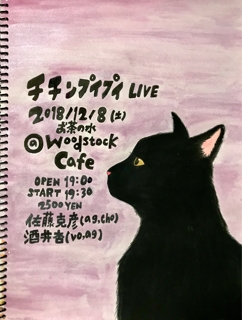 チチンプイプイ LIVE
2018/12/8(土)
お茶の水
@Woodstock
Cafe
OPEN 19:00
START 19:30
2500YEN
佐藤克彦(ag.cho)
酒井杏(vo,ag)